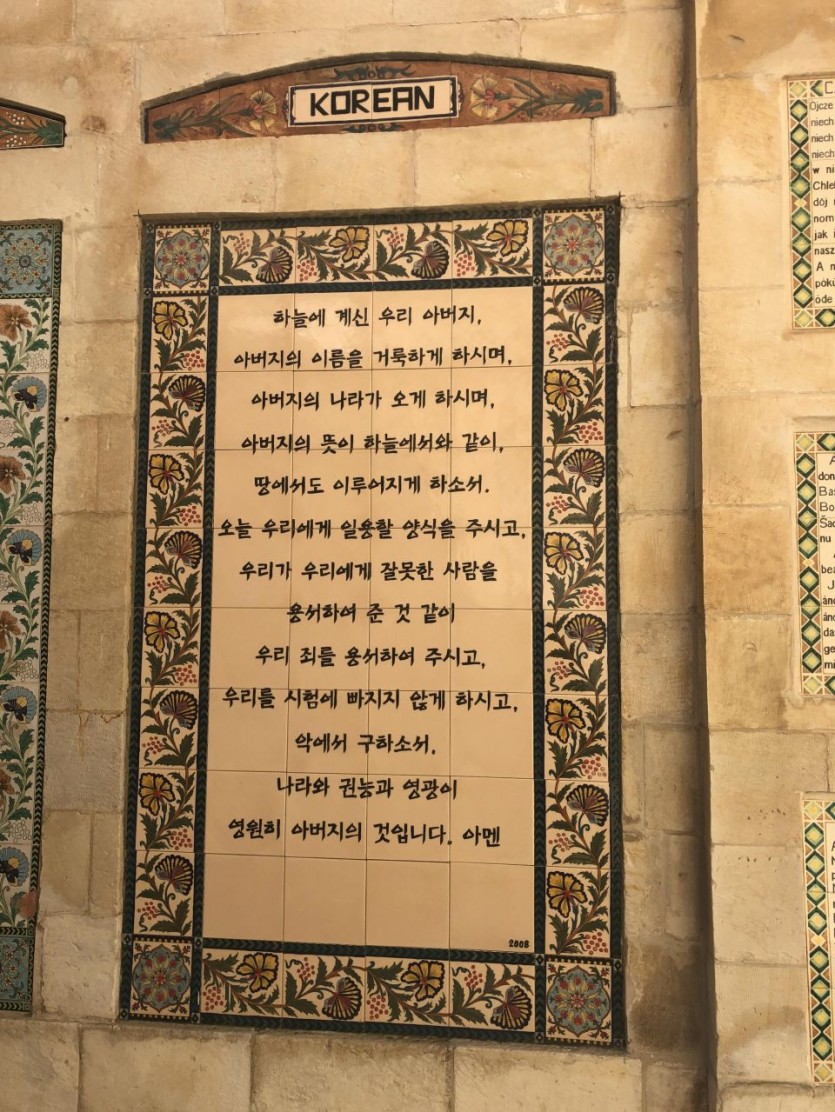 KOREAN
하늘에 계신 우리 아버지,
아버지의 이름을 거룩하게 하시며,
아버지의 나라가 오게 하시며,
아버지의 뜻이 하늘에서와 같이,
땅에서도 이루어지게 하소서.
오늘 우리에게 일용할 양식을 주시고,
우리가 우리에게 잘못한 사람을
용서하여 준 것 같이
우리 죄를 용서하여 주시고,
우리를 시험에 빠지지 않게 하시고,
악에서 구하소서.
나라와 권능과 영광이
영원히 아버지의 것입니다. 아멘
2008
Ojcze
niech
niech
niech
w ni
Chle
dój
nom
jak i
nasz
A n
pokú
ode
don
Bas
Bo
Šac
nu